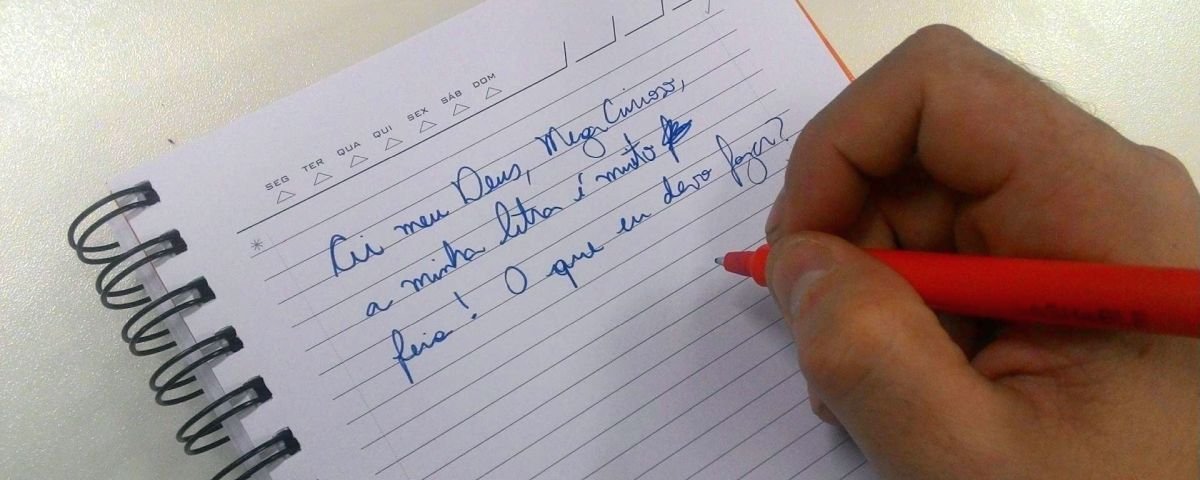 SEG TER QUA QUI SEX SÁB DOM
Ai meu Deus, Mega Curioso,
a minha letra é muito
feia! O que eu devo fazer?